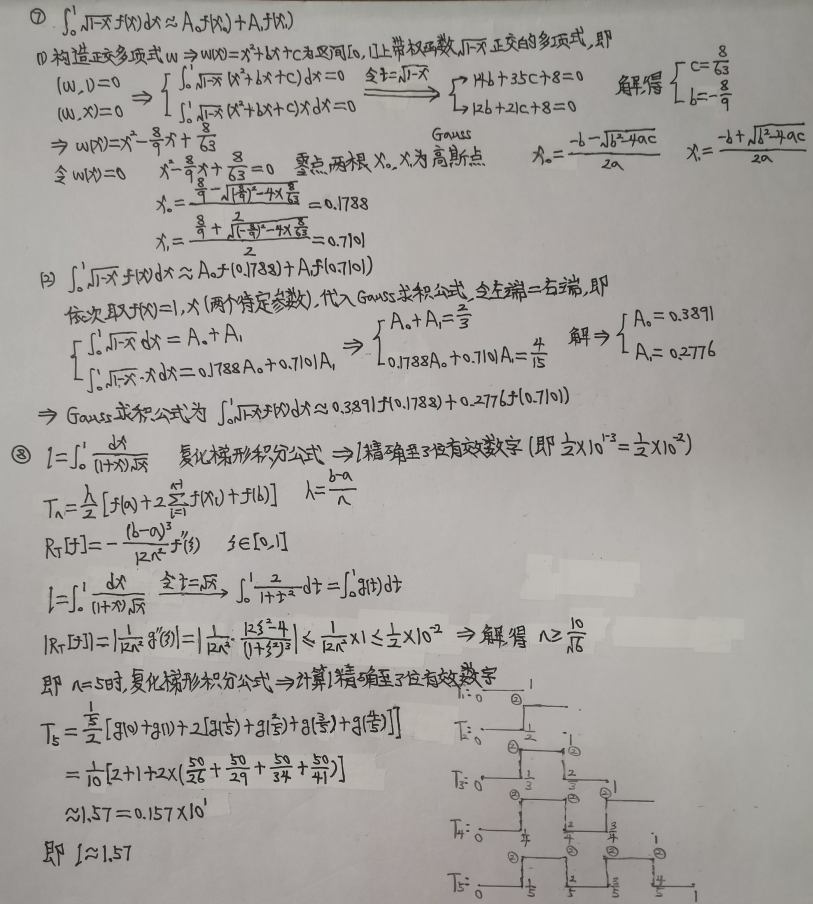 ⑦ ∫₀¹ √(1-x) f(x)dx ≈ A₀f(x₀)+A₁f(x₁)
(1) 构造正交多项式 w ⇒ w(x)=x²+bx+c 为区间[0,1]上带权函数 √(1-x) 正交的多项式,即
(w,1)=0
(w,x)=0
⇒ { ∫₀¹ √(1-x)(x²+bx+c)dx=0
∫₀¹ √(1-x)(x²+bx+c)xdx=0
令t=√(1-x) ⇒
14b+35c+8=0
12b+21c+8=0
解得 { c=8/63
b=-8/9
⇒ w(x)=x²-8/9x+8/63
令w(x)=0 x²-8/9x+8/63=0 零点两根x₀、x₁为Gauss高斯点 x₀=(-b-√(b²-4ac))/2a x₁=(-b+√(b²-4ac))/2a
x₀=(8/9-√((-8/9)²-4×8/63))/2=0.1788
x₁=(8/9+√((-8/9)²-4×8/63))/2=0.7101
(2) ∫₀¹ √(1-x) f(x)dx ≈ A₀f(0.1788)+A₁f(0.7101)
依次取f(x)=1,x(两个待定参数),代入Gauss求积公式,令左端=右端,即
{ ∫₀¹ √(1-x) dx=A₀+A₁
∫₀¹ √(1-x)·xdx=0.1788A₀+0.7101A₁
⇒ { A₀+A₁=2/3
0.1788A₀+0.7101A₁=4/15
解⇒ { A₀=0.3891
A₁=0.2776
⇒ Gauss求积公式为 ∫₀¹ √(1-x) f(x)dx≈0.3891f(0.1788)+0.2776f(0.7101)
⑧ I=∫₀¹ dx/((1+x)√x) 复化梯形积分公式 ⇒ I精确至3位有效数字(即 1/2×10¹⁻³=1/2×10⁻²)
Tₙ=h/2[f(a)+2∑ᵢ₌₁ⁿ⁻¹f(xᵢ)+f(b)] h=(b-a)/n
R_T[f]=-(b-a)³/12n² f''(ξ) ξ∈[0,1]
I=∫₀¹ dx/((1+x)√x) 令t=√x → ∫₀¹ 2/(1+t²) dt=∫₀¹g(t)dt
|R_T[f]|=|1/12n² g''(ξ)|=|1/12n² · (12ξ²-4)/(1+ξ²)³| ≤ 1/12n²×1 ≤ 1/2×10⁻² ⇒ 解得 n≥10/√6
即 n=5时,复化梯形积分公式⇒计算I精确至3位有效数字
T₅=(1/5)/2[g(0)+g(1)+2[g(1/5)+g(2/5)+g(3/5)+g(4/5)]]
=1/10[2+1+2×(50/26+50/29+50/34+50/41)]
≈1.57=0.157×10¹
即 I≈1.57
T₁: 0 ② 1
T₂: 0 ② 1/2 1
T₃: 0 ② 1/3 ② 2/3 1
T₄: 0 ② 1/4 ② 2/4 ② 3/4 1
T₅: 0 ② 1/5 ② 2/5 ② 3/5 ② 4/5 1